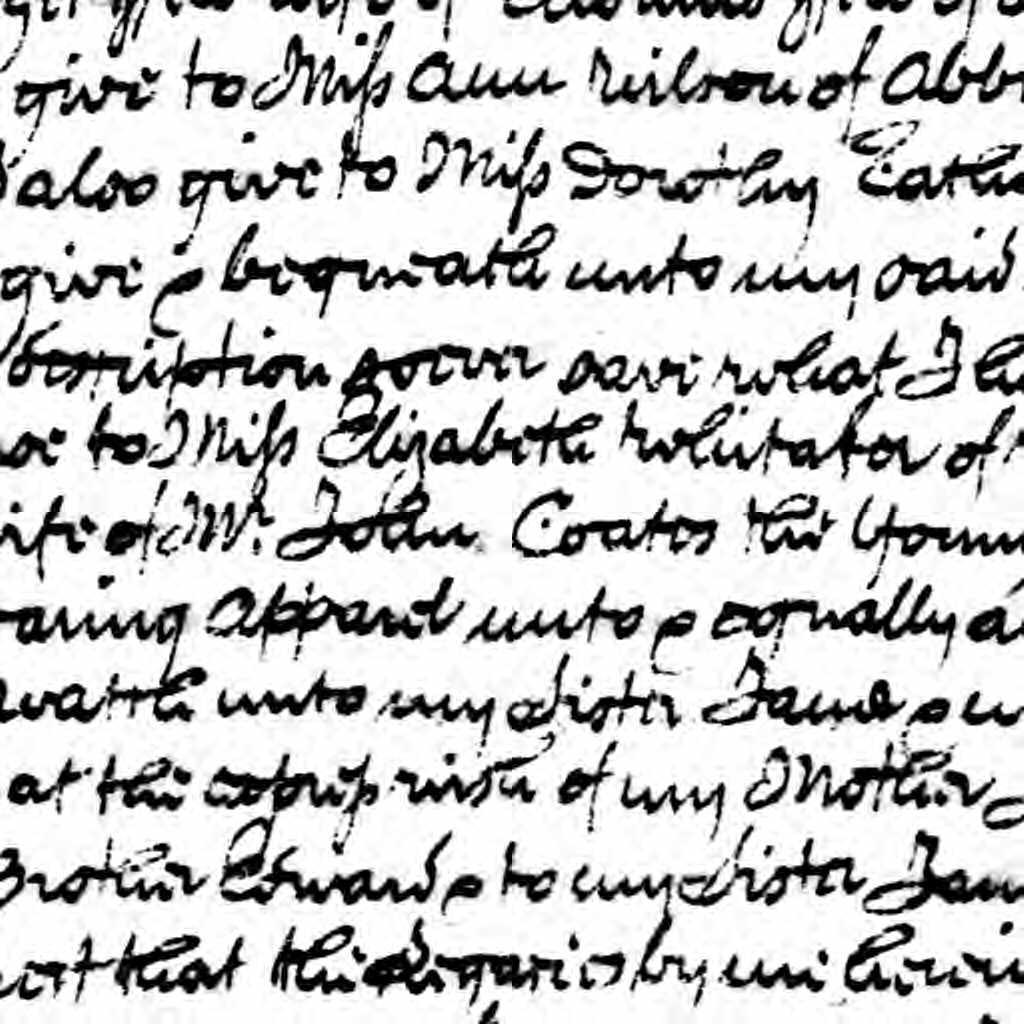 give to Miss Ann Wilson of Abb
also give to Miss Dorothy
give & bequeath unto my said
description soever save what I
to Miss Elizabeth Whitaker of
wife of Mr. John Coates the Youn
aring apparel unto & equally
unto my Sister Jane &
at the express wish of my Mother
Brother Edward & to my Sister Jane
that the Legacies by me herein